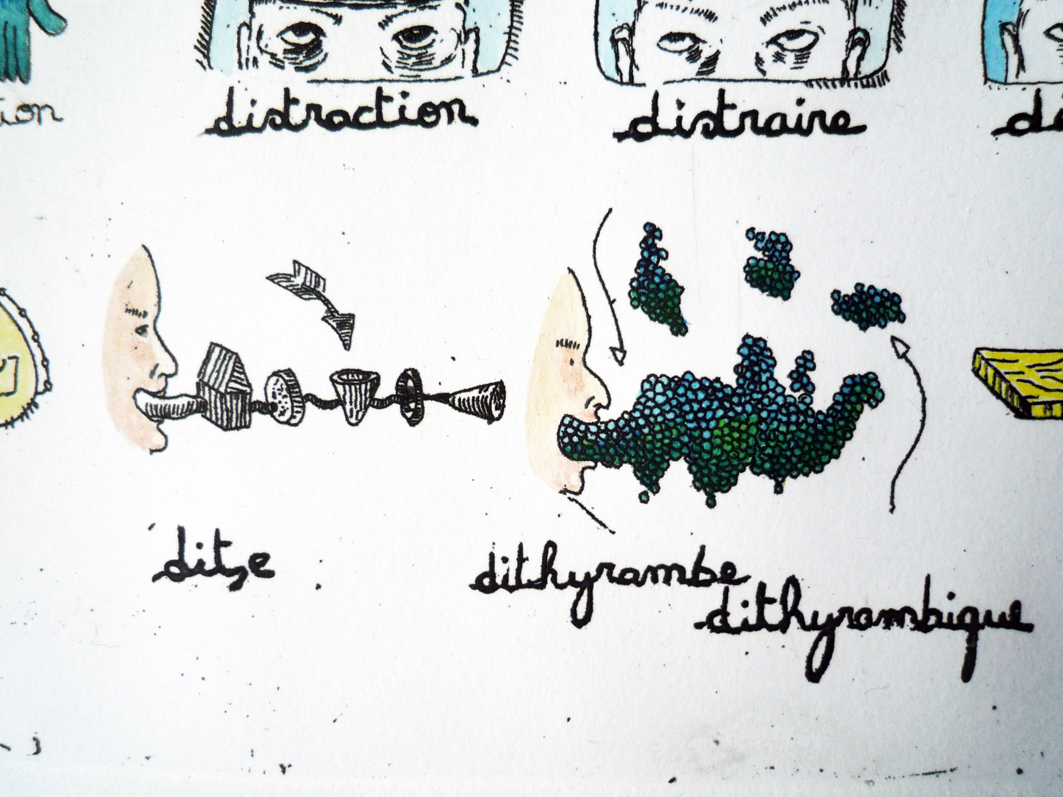 ion
distraction
distraire
dit,e
dithyrambe
dithyrambique